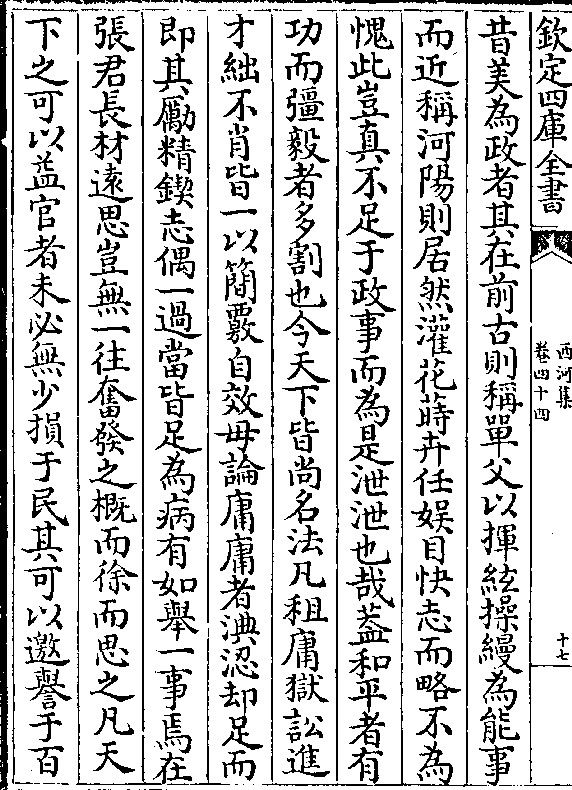 欽定四庫全書
西河集
卷四十四
十七
昔美為政者其在前古則稱單父以揮絃操縵為能事
而近稱河陽則居然灌花蒔卉任娯目快志而略不為
愧此豈真不足于政事而為是泄泄也哉葢和平者有
功而彊毅者多割也今天下皆尚名法凡租庸獄訟進
才絀不肖皆一以簡覈自效毋論庸庸者淟涊却足而
即其厲精鍥志偶一過當皆足為病有如舉一事焉在
張君長材遠思豈無一往奮發之概而徐而思之凡天
下之可以益官者未必無少損于民其可以邀譽于百